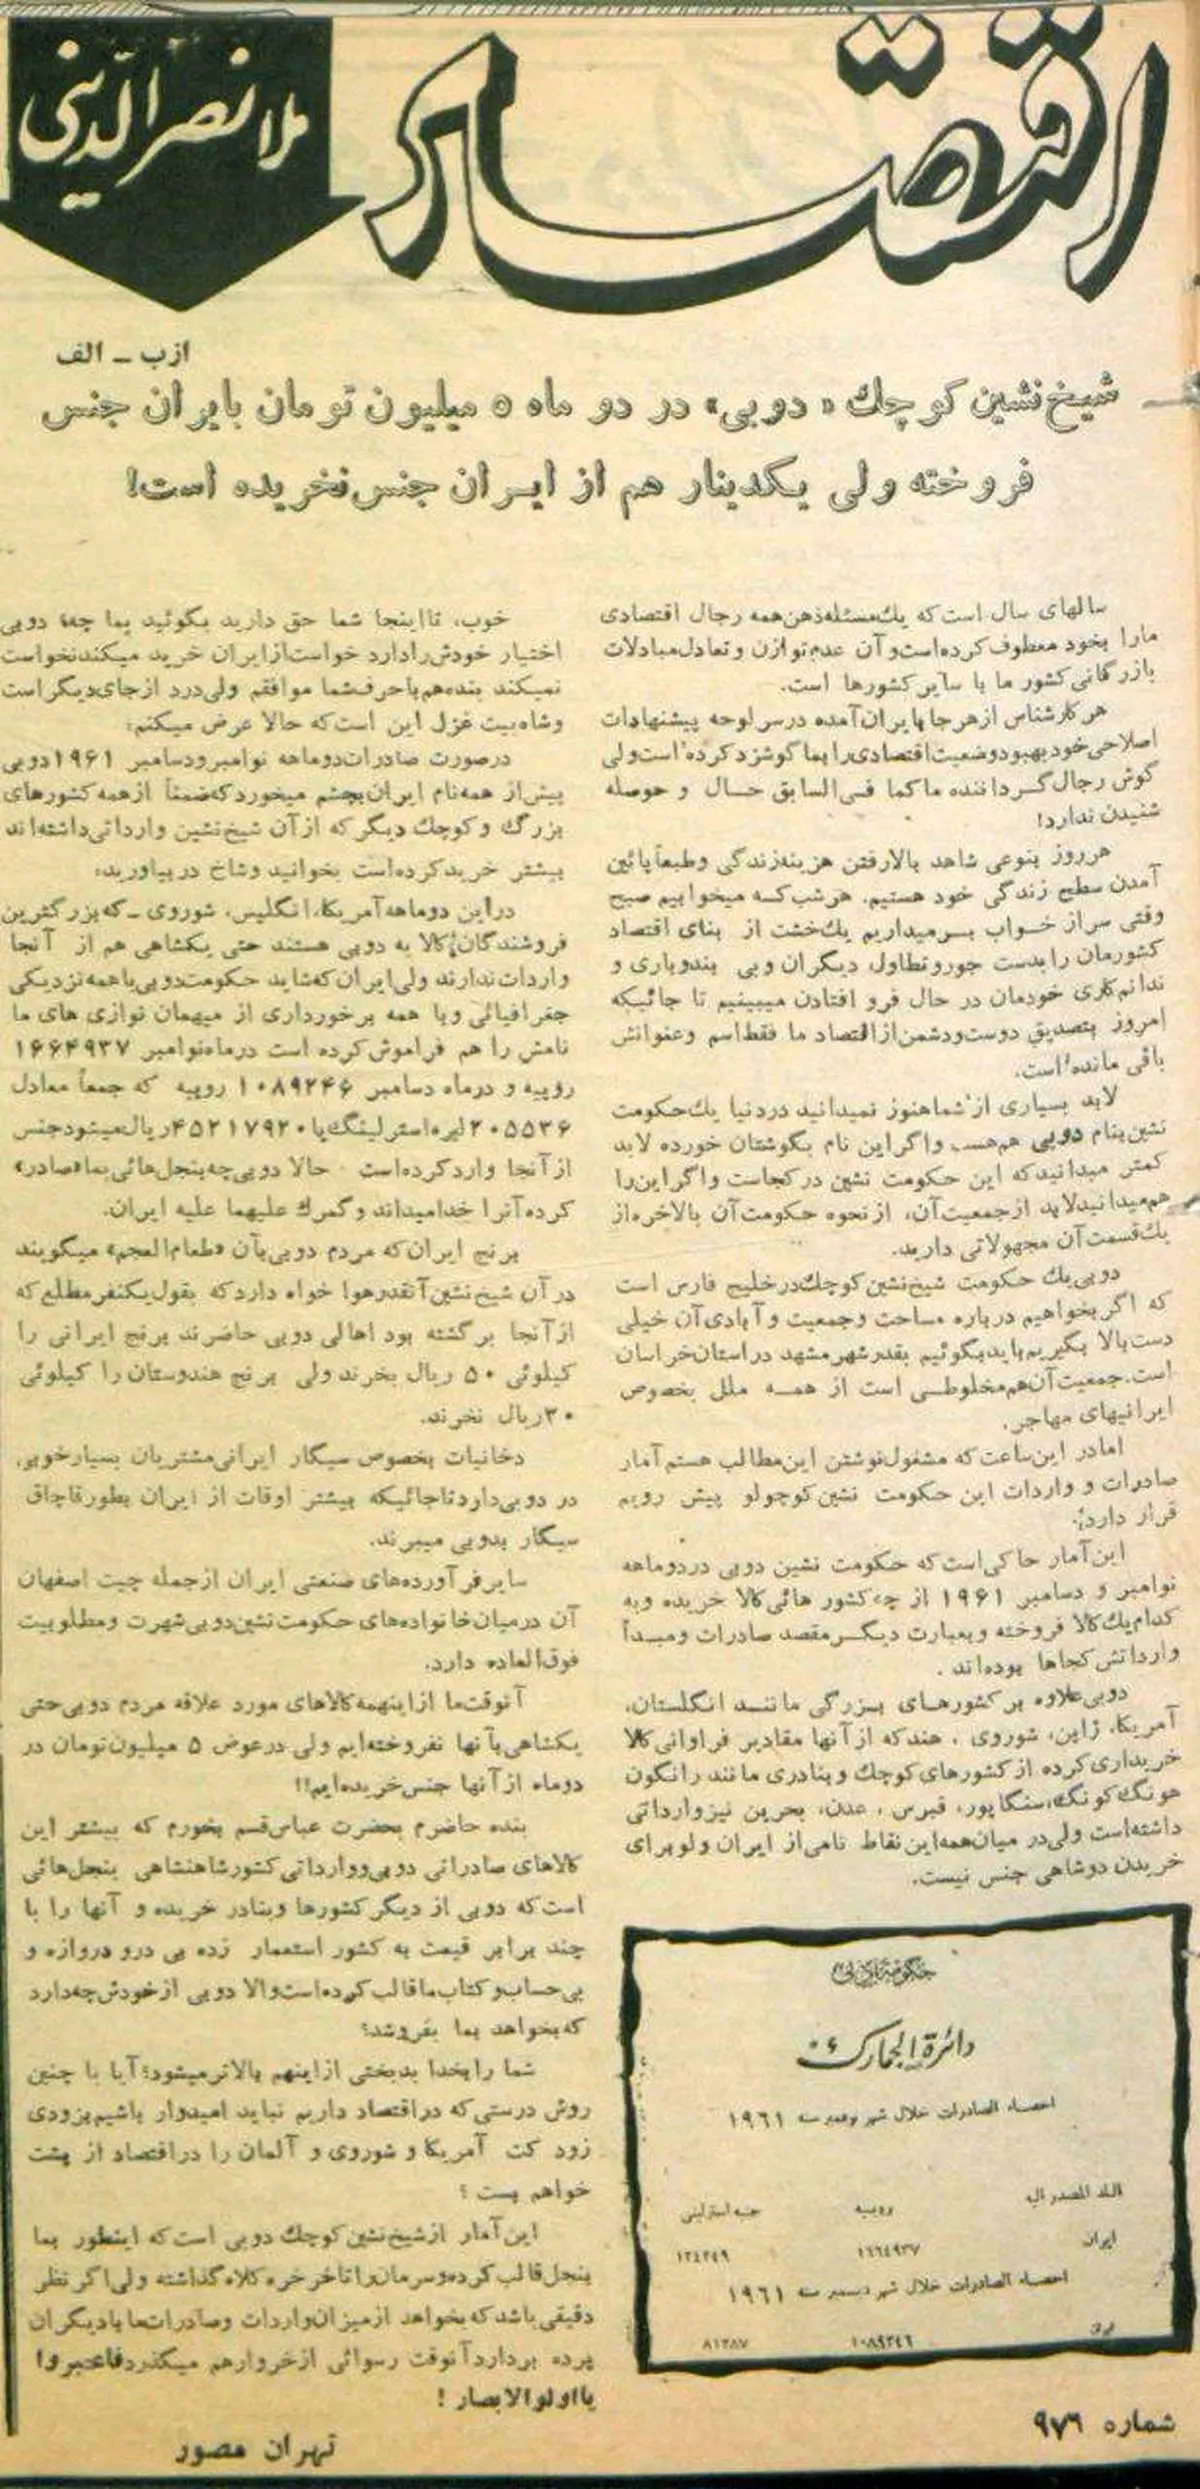 اقتصاد
ملا نصرالدینی
از ب ـ الف
شیخ‌نشین کوچك «دوبی» در دو ماه ۵ میلیون تومان بایران جنس
فروخته ولی یکدینار هم از ایران جنس نخریده است!
سالهای سال است که یك‌مسئله‌ذهن‌همه رجال اقتصادی
مارا بخود معطوف کرده‌است‌و آن عدم‌توازن و تعادل‌مبادلات
بازرگانی‌کشور ما با سایر کشورها است.
هر کارشناس از هر جا بایران‌آمده درسر لوحه پیشنهادات
اصلاحی‌خود بهبود وضعیت‌اقتصادی‌را بما گوشزد کرده‌است‌ولی
گوش رجال گرداننده ما کما فی‌السابق حال و حوصله
شنیدن ندارد!
هر روز بنوعی شاهد بالارفتن هزینه‌زندگی وطبعاً پائین
آمدن سطح زندگی خود هستیم. هرشب که میخوابیم صبح
وقتی سراز خواب برمیداریم یك‌خشت از بنای اقتصاد
کشورمان را بدست جور و تطاول دیگران و بی بندوباری و
ندانم‌کاری خودمان در حال فرو افتادن میبینیم تا جائیکه
امروز بتصدیق دوست‌ودشمن از اقتصاد ما فقط‌اسم وعنوانش
باقی مانده‌است.
لابد بسیاری از شما هنوز نمیدانید دردنیا یك‌حکومت
نشین‌بنام دوبی هم‌هست و اگر این نام بگوشتان خورده لابد
کمتر میدانید که این حکومت نشین در کجاست و اگر این‌را
هم‌میدانید لابد از جمعیت‌آن، از نحوه حکومت‌آن بالاخره‌از
یك‌قسمت آن مجهولاتی دارید.
دوبی‌یك حکومت شیخ‌نشین‌کوچك‌در خلیج فارس است
که اگر بخواهیم درباره مساحت و جمعیت و آبادی‌آن خیلی
دست‌بالا بگیریم باید بگوئیم بقدر شهر مشهد در استان‌خراسان
است. جمعیت‌آن‌هم‌مخلوطی است از همه ملل بخصوص
ایرانیهای مهاجر.
امادر این‌ساعت که مشغول‌نوشتن این‌مطالب هستم آمار
صادرات و واردات این حکومت نشین‌کوچولو پیش رویم
قرار دارد:
این‌آمار حاکی‌است که حکومت نشین دوبی در دو ماهه
نوامبر و دسامبر ۱۹۶۱ از چه کشور هائی‌کالا خریده و به
کدام‌یك‌کالا فروخته و بعبارت دیگر مقصد صادرات و مبدأ
وارداتش کجاها بوده‌اند .
دوبی‌علاوه بر کشورهای بزرگی مانند انگلستان،
آمریکا، ژاپن، شوروی ، هند که از آنها مقادیر فراوانی کالا
خریداری‌کرده از کشورهای کوچك و بنادری مانند رانگون
هونگ‌کونگ، سنگاپور، قبرس ، عدن، بحرین نیز وارداتی
داشته‌است ولی‌در میان‌همه‌این نقاط نامی از ایران ولو برای
خریدن دوشاهی جنس نیست.
دائرة الجمارك
احصاء الصادرات خلال شهر نوفمبر سنه ۱۹٦۱
البلد المصدر الیه روپیه جنیه استرلینی
ایران ۱٦٦٤٩٣٧ ۱۲٤٢٤٩
احصاء الصادرات خلال شهر دیسمبر سنه ۱۹٦۱
ایران ۱۰۸۹۲٤٦ ۸۱۲۸۷
شماره ۹۷۶
خوب، تااینجا شما حق دارید بگوئید بما چه؟ دوبی
اختیار خودش‌را دارد خواست‌از ایران خرید میکند نخواست
نمیکند بنده‌هم با حرف‌شما موافقم ولی‌درد از جای‌دیگر است
وشاه‌بیت غزل این است‌که حالا عرض میکنم:
درصورت صادرات‌دوماهه نوامبر و دسامبر ۱۹۶۱ دوبی
بیش‌از همه‌نام ایران‌بچشم میخورد که‌ضمناً از همه کشورهای
بزرگ و کوچك دیگر که از آن شیخ‌نشین وارداتی‌داشته‌اند
بیشتر خرید کرده‌است بخوانید و شاخ در بیاورید:
در این دوماهه آمریکا، انگلیس، شوروی ـ که‌بزرگترین
فروشندگان کالا به دوبی هستند حتی یکشاهی هم از آنجا
واردات ندارند ولی‌ایران که‌شاید حکومت‌دوبی‌با همه نزدیکی
جغرافیائی و با همه برخورداری از میهمان نوازی های ما
نامش را هم فراموش‌کرده است در ماه‌نوامبر ۱۶۶۴۹۳۷
روپیه و در ماه دسامبر ۱۰۸۹۲۴۶ روپیه که جمعاً معادل
۲۰۵۵۳۶ لیره‌استرلینگ‌یا ۴۵۲۱۷۹۲۰ ریال‌میشود جنس
از آنجا وارد کرده‌است حالا دوبی‌چه‌بنجل‌هائی‌بما «صادر»
کرده آنرا خدامیداند و گمرك علیهما علیه ایران.
برنج ایران که مردم دوبی بآن «طعام‌العجم» میگویند
در آن شیخ‌نشین آنقدر هوا خواه دارد که بقول یکنفر مطلع که
از آنجا برگشته بود اهالی دوبی حاضرند برنج ایرانی را
کیلوئی ۵۰ ریال بخرند ولی برنج هندوستان را کیلوئی
۳۰ ریال نخرند.
دخانیات بخصوص سیگار ایرانی مشتریان بسیارخوبی
در دوبی‌دارد تاجائیکه بیشتر اوقات از ایران بطور قاچاق
سیگار بدوبی میبرند.
سایر فرآورده‌های صنعتی ایران از جمله چیت اصفهان
آن درمیان خانواده‌های حکومت نشین‌دوبی شهرت ومطلوبیت
فوق‌العاده دارد.
آنوقت‌ما از اینهمه کالاهای مورد علاقه مردم دوبی‌حتی
یکشاهی بآنها نفروخته‌ایم ولی‌درعوض ۵ میلیون‌تومان در
دوماه از آنها جنس خریده‌ایم!!
بنده حاضرم بحضرت عباس‌قسم بخورم که بیشتر این
کالاهای صادراتی دوبی‌ووارداتی کشورشاهنشاهی بنجل‌هائی
است‌که دوبی از دیگر کشورها و بنادر خریده و آنها را با
چند برابر قیمت به کشور استعمار زده بی درو دروازه و
بی‌حساب‌و کتاب ما قالب کرده‌است‌والا دوبی از خودش‌چه‌دارد
که بخواهد بما بفروشد؟
شما را بخدا بدبختی از اینهم بالاتر میشود؟ آیا با چنین
روش درستی که دراقتصاد داریم نباید امیدوار باشیم‌بزودی
زود کت آمریکا و شوروی و آلمان را در اقتصاد از پشت
خواهم بست ؟
این‌آمار از شیخ‌نشین کوچك دوبی است که اینطور بما
بنجل قالب کرده‌وسرمان‌را تا خرخره کلاه گذاشته ولی‌اگر نظر
دقیقی باشد که بخواهد از میزان‌واردات وصادرات‌ما با دیگران
پرده بردارد آنوقت رسوائی از خروار هم میگذرد فاعتبروا
یا اولوالابصار !
تهران مصور